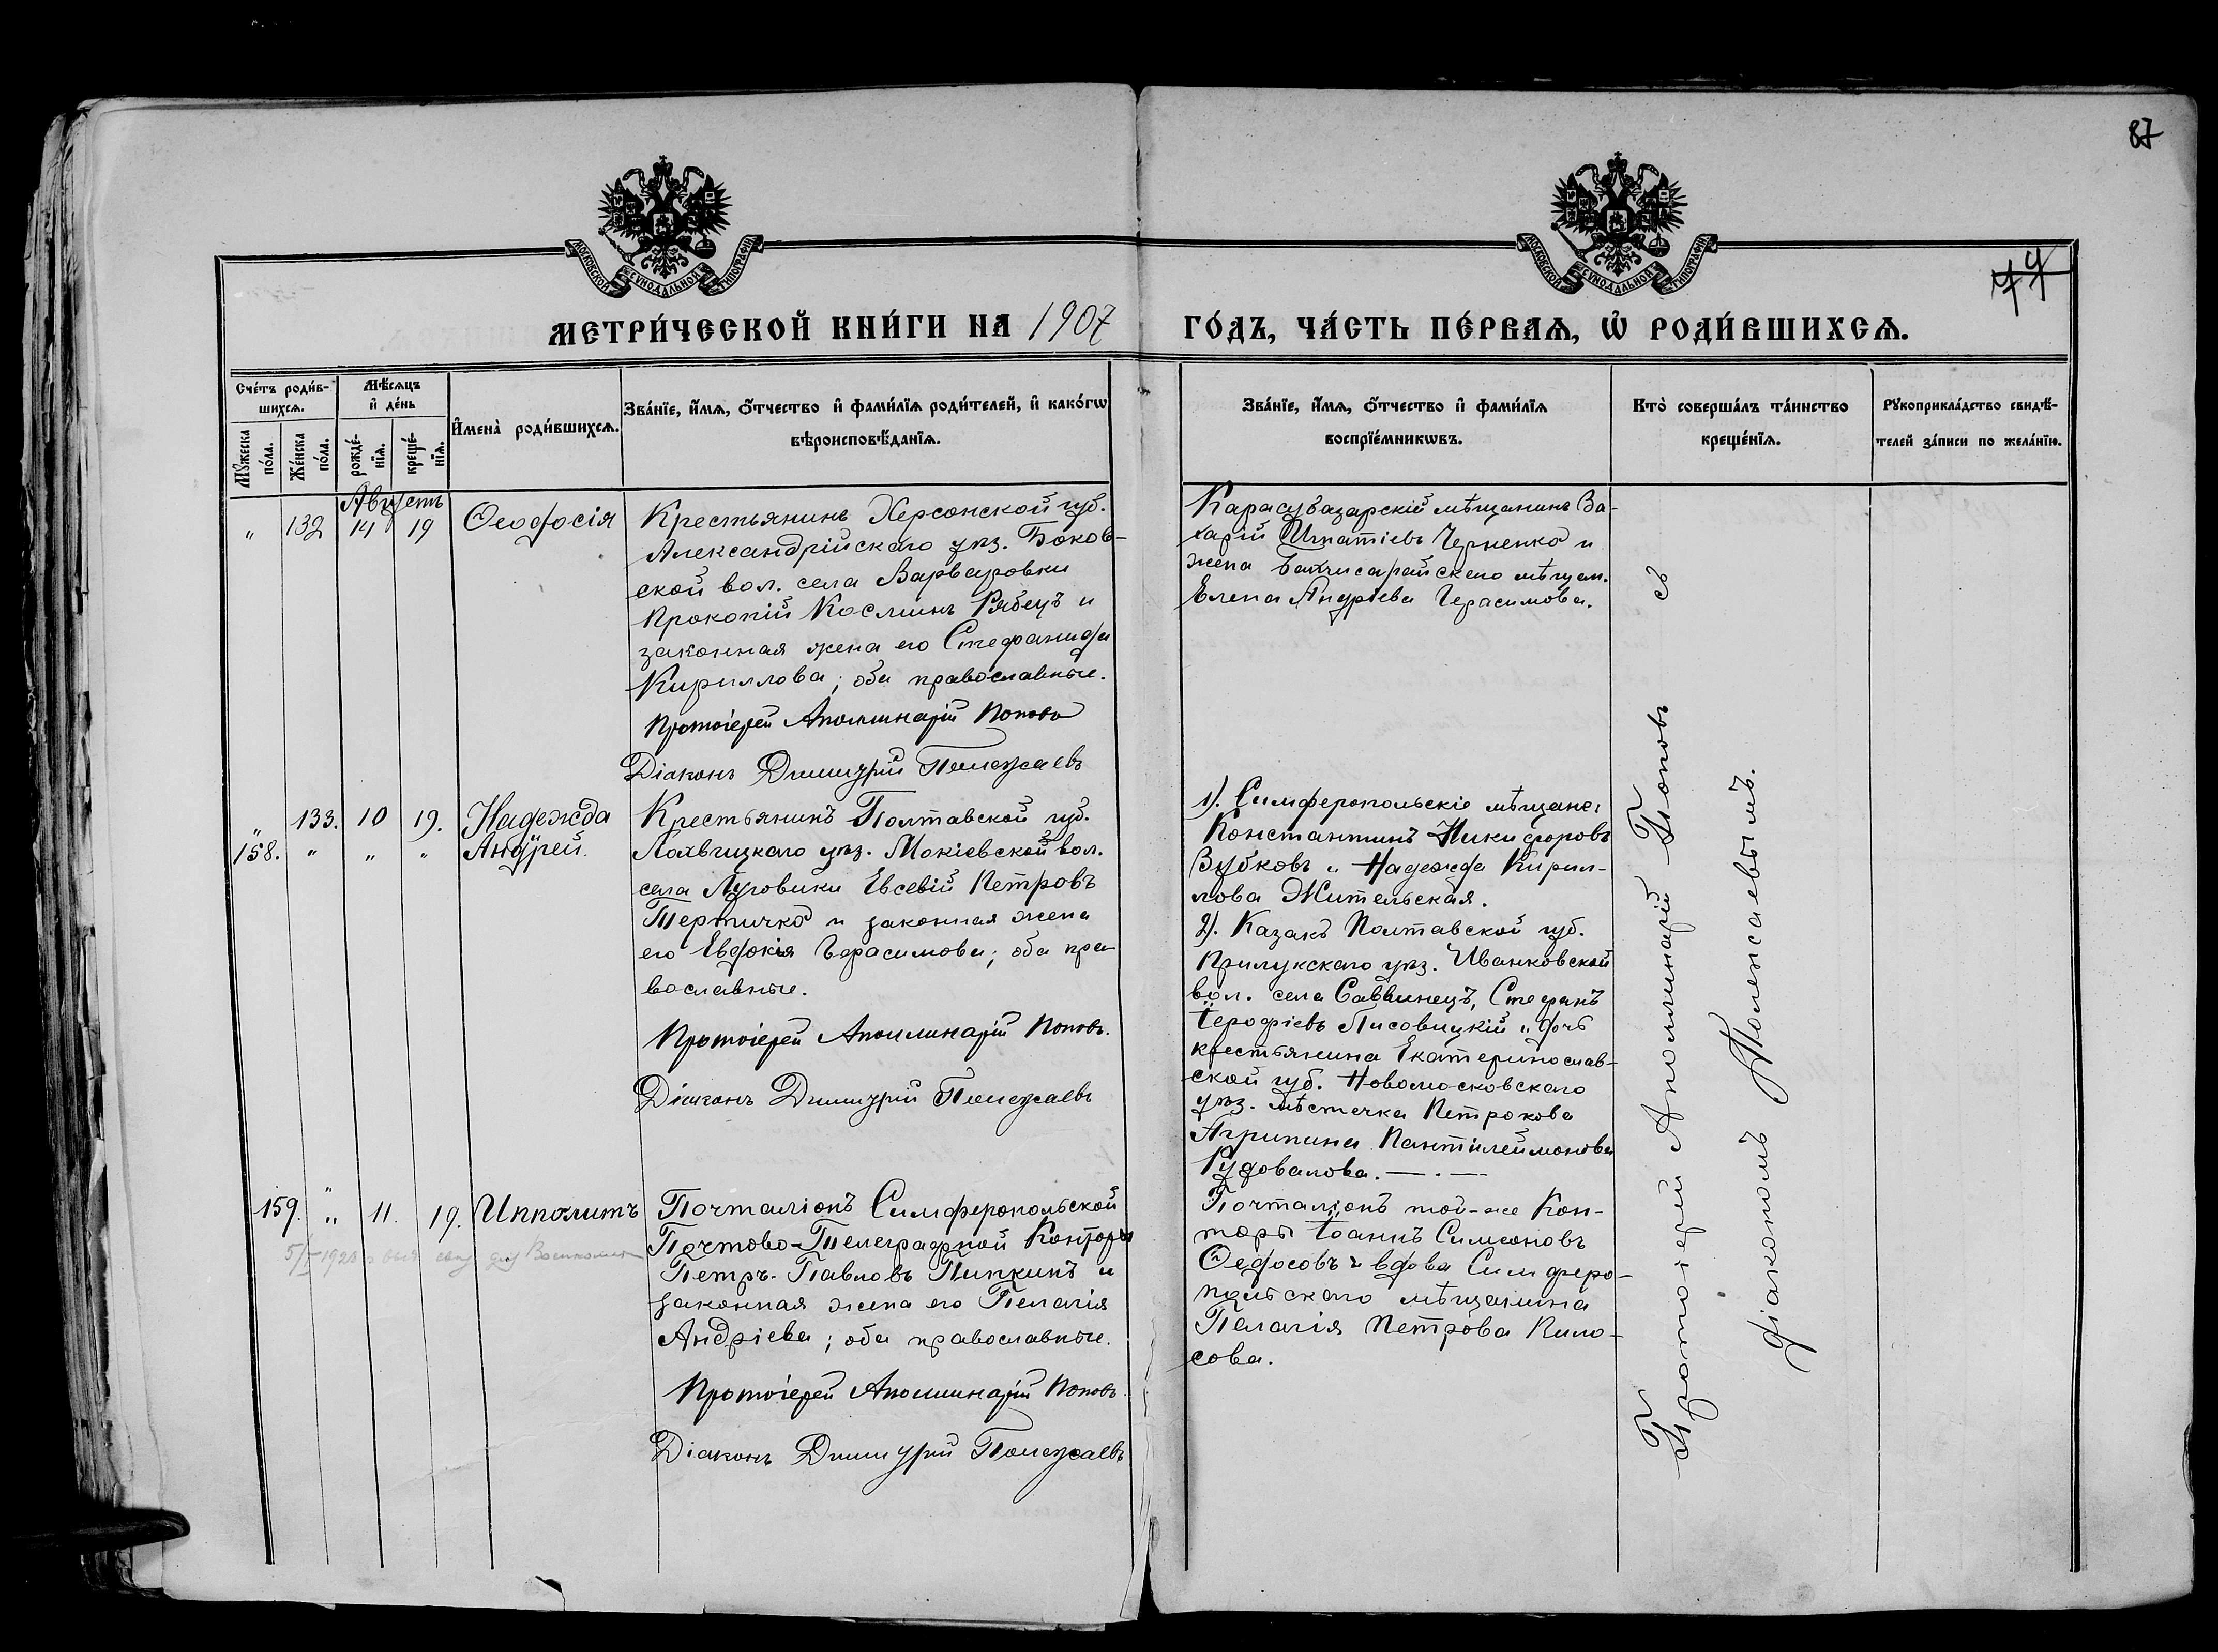 87
74
МОСКОВСКОЙ СѴНОДАЛЬНОЙ ТИПОГРАФІИ
МОСКОВСКОЙ СѴНОДАЛЬНОЙ ТИПОГРАФІИ
МЕТРИ́ЧЕСКОЙ КНИ́ГИ НА 1907 ГО́ДЪ, ЧА́СТЬ ПЕ́РВАѦ, Ѡ҆ РОДИ́ВШИХСѦ.
Сче́тъ роди́в-
шихсѧ.
Мꙋ́жеска
по́ла.
Же́нска
по́ла.
Мѣ́сѧцъ
и҆ де́нь
рожде́-
нїѧ.
креще́-
нїѧ.
И҆мена̀ роди́вшихсѧ.
Зва́нїе, и҆́мѧ, ѻ҆́тчество и҆ фами́лїѧ роди́телей, и҆ како́гѡ
вѣроисповѣ́данїѧ.
Зва́нїе, и҆́мѧ, ѻ҆́тчество и҆ фами́лїѧ
воспрїе́мникѡвъ.
Кто̀ соверша́лъ та́инство
креще́нїѧ.
Рꙋкоприкла́дство свидѣ́-
телей за́писи по жела́нїю.
Августъ
" 132 14 19 Ѳеодосія
Крестьянинъ Херсонской губ.
Александрійскаго уѣз. Боков-
ской вол. села Варваровки
Прокопій Косминъ Рябецъ и
законная жена его Стефанида
Кириллова; оба православные.
Протоіерей Аполлинарій Поповъ
Діаконъ Димитрій Полежаевъ
Карасубазарскій мѣщанинъ За-
харій Игнатіевъ Черненко и
жена Бахчисарайскаго мѣщан.
Елена Андріева Герасимова.
" 133. 10 19. Надежда
158. " " " Андрей.
Крестьянинъ Полтавской губ.
Лохвицкаго уѣз. Мокіевской вол.
села Луговики Евсевій Петровъ
Тертичко и законная жена
его Евдокія Герасимова; оба пра-
вославные.
Протоіерей Аполлинарій Поповъ.
Діаконъ Димитрій Полежаевъ
1). Симферопольскіе мѣщане:
Константинъ Никифоровъ
Зубковъ и Надежда Кирил-
лова Жительская.
2). Казакъ Полтавской губ.
Прилукскаго уѣз. Иванковской
вол. села Саввинецъ, Стефанъ
Іерофіевъ Лисовицкій и дочь
крестьянина Екатеринослав-
ской губ. Новомосковскаго
уѣз. мѣстечка Петрокова
Агрипина Пантилеймонова
Рудовалова.
159. " 11. 19. Ипполитъ
5/I-1928
Почталіонъ Симферопольской
Почтово-Телеграфной Конторы
Петръ Павловъ Пипкинъ и
законная жена его Пелагія
Андріева; оба православные.
Протоіерей Аполлинарій Поповъ.
Діаконъ Димитрій Полежаевъ
Почталіонъ той-же Кон-
торы Іоаннъ Симеоновъ
Ѳедосовъ и вдова Симферо-
польскаго мѣщанина
Пелагія Петрова Кило-
сова.
Протоіерей Аполлинарій Поповъ с
діакономъ Полежаевымъ.